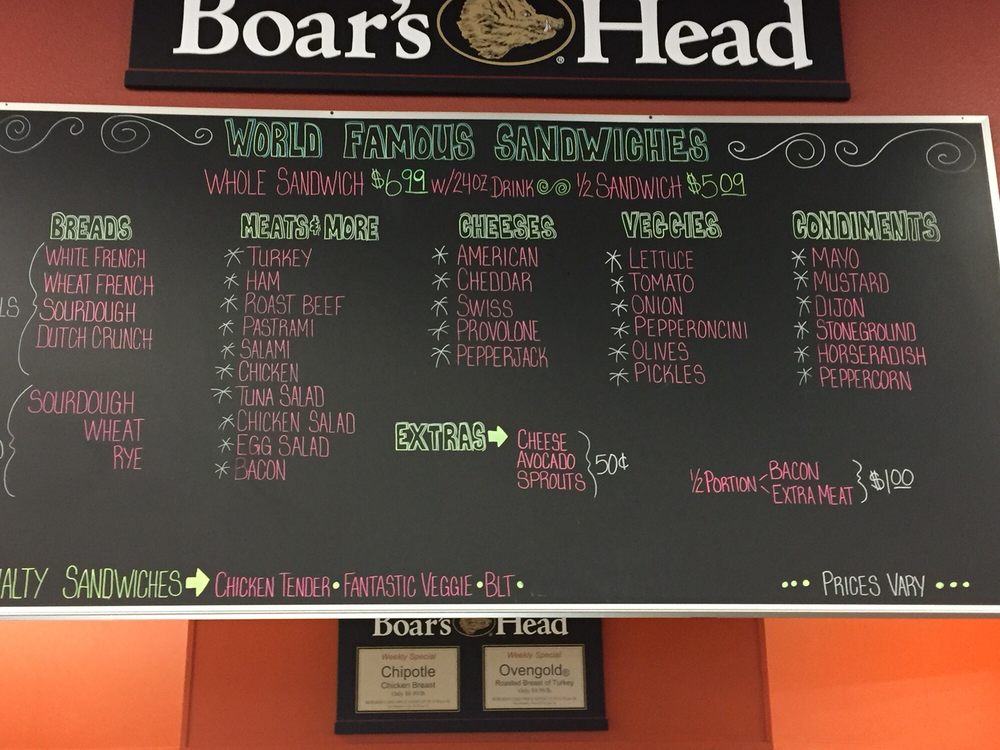 Boar's Head
WORLD FAMOUS SANDWICHES
WHOLE SANDWICH $6.99 W/24OZ DRINK ½ SANDWICH $5.09
BREADS
WHITE FRENCH
WHEAT FRENCH
SOURDOUGH
DUTCH CRUNCH
SOURDOUGH
WHEAT
RYE
MEATS & MORE
* TURKEY
* HAM
* ROAST BEEF
* PASTRAMI
* SALAMI
* CHICKEN
* TUNA SALAD
* CHICKEN SALAD
* EGG SALAD
* BACON
CHEESES
* AMERICAN
* CHEDDAR
* SWISS
* PROVOLONE
* PEPPERJACK
VEGGIES
* LETTUCE
* TOMATO
* ONION
* PEPPERONCINI
* OLIVES
* PICKLES
CONDIMENTS
* MAYO
* MUSTARD
* DIJON
* STONEGROUND
* HORSERADISH
* PEPPERCORN
EXTRAS → CHEESE
AVOCADO
SPROUTS
50¢
½ PORTION < BACON
EXTRA MEAT
$1.00
ALTY SANDWICHES → CHICKEN TENDER • FANTASTIC VEGGIE • BLT •
••• PRICES VARY •••
Boar's Head
Weekly Special
Chipotle
Chicken Breast
Weekly Special
Ovengold®
Roasted Breast of Turkey